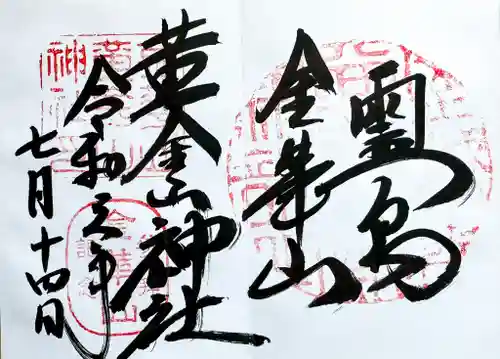 霊島
金華山
黄金山神社
令和元年
七月十四日